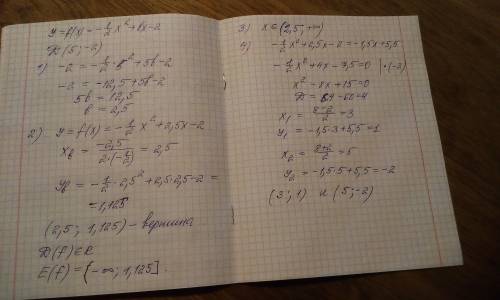 y=f(x)=-1/2 x²+bx-2
D(5;-2)
1) -2=-1/2·5²+5b-2
-2=-12,5+5b-2
5b=12,5
b=2,5
2) y=f(x)=-1/2 x²+2,5x-2
xв=-2,5/(2·(-1/2))=2,5
yв=-1/2·2,5²+2,5·2,5-2=
=1,125
(2,5; 1,125)-вершина
D(f)∈R
E(f)=[-∞;1,125].
3) x∈(2,5;+∞)
4) -1/2x²+2,5x-2=-1,5x+5,5
-1/2x²+4x-7,5=0 |·(-2)
x²-8x+15=0
D=64-60=4
x₁=(8-2)/2=3
y₁=-1,5·3+5,5=1
x₂=(8+2)/2=5
y₂=-1,5·5+5,5=-2
(3;1) и (5;-2)